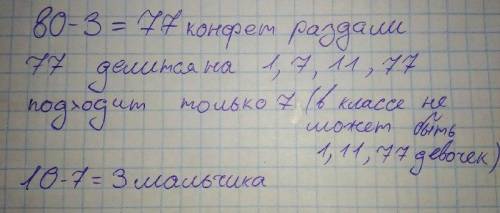 80-3 = 77 конфет раздали
77 делится на 1, 7, 11, 77
подходит только 7 (в классе не
может быть
1, 11, 77 девочек)
10-7 = 3 мальчика